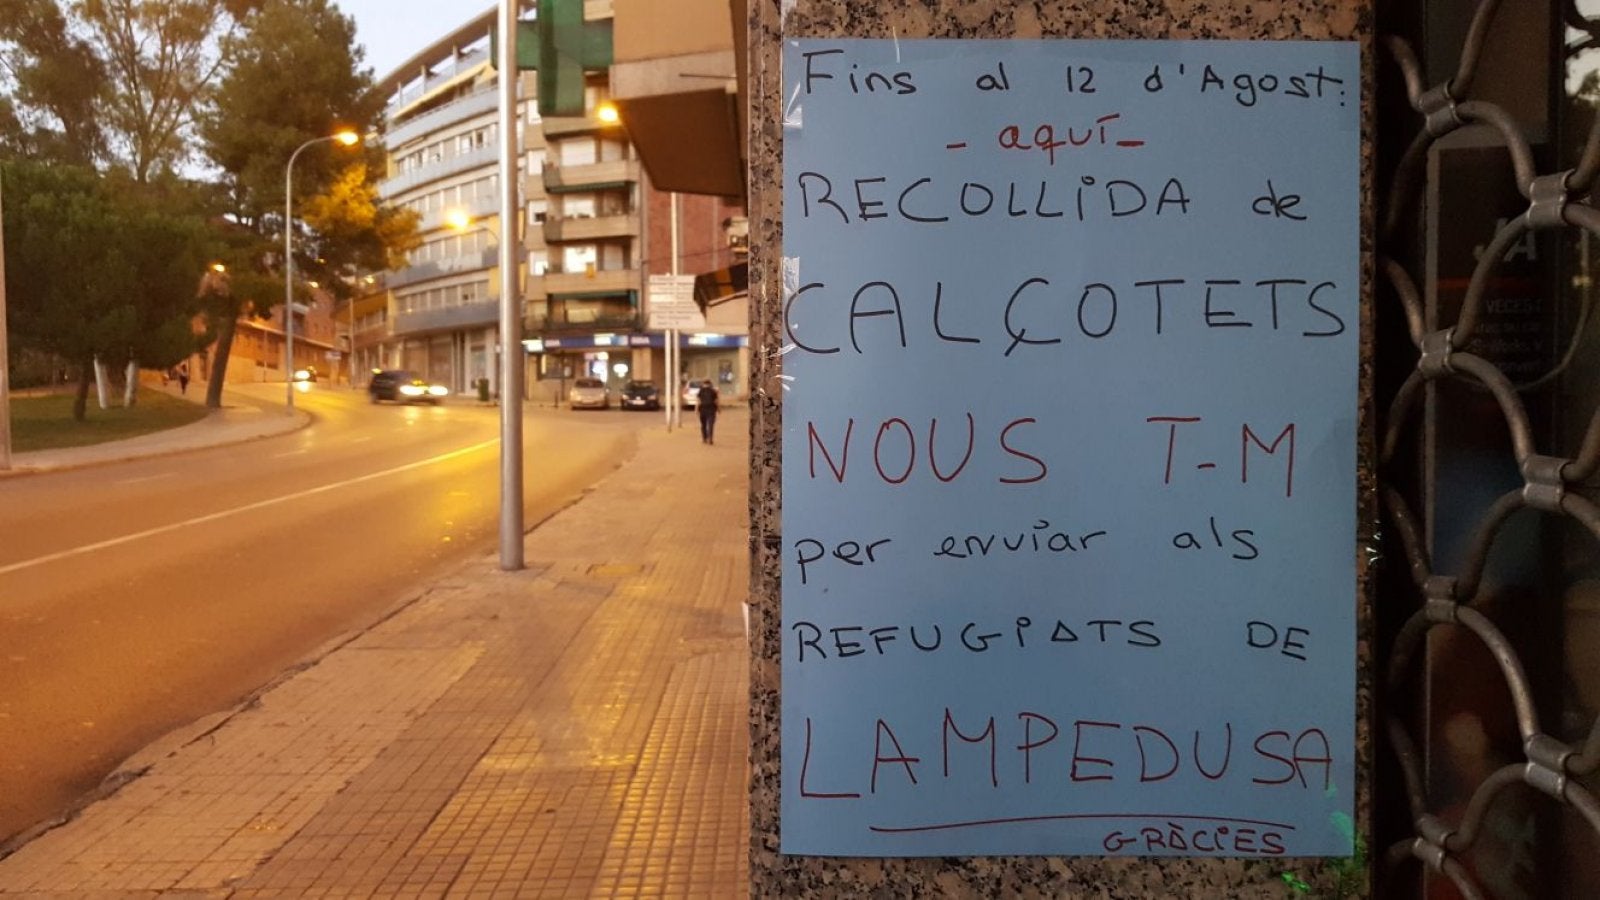 Fins al 12 d'Agost:
- aquí -
RECOLLIDA de
CALÇOTETS
NOUS T-M
per enviar als
REFUGIATS DE
LAMPEDUSA
GRÀCIES